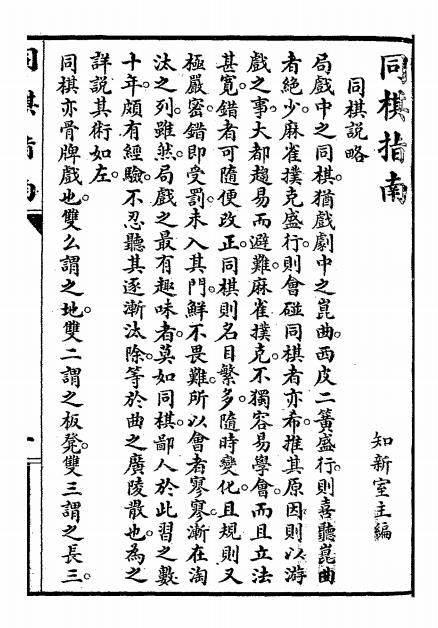 同棋指南
知新室主編
同棋說略
局戲中之同棋。猶戲劇中之崑曲。西皮二簧盛行。則喜聽崑曲
者絶少。麻雀撲克盛行。則會碰同棋者亦希。推其原因。則以游
戲之事。大都趨易而避難。麻雀撲克。不獨容易學會。而且立法
甚寬。錯者可隨便改正。同棋則名目繁多。隨時變化。且規則又
極嚴密。錯卽受罰。未入其門。鮮不畏難。所以會者寥寥。漸在淘
汰之列。雖然。局戲之最有趣味者。莫如同棋。鄙人於此習之數
十年。頗有經驗。不忍聽其逐漸汰除。等於曲之廣陵散也。為之
詳說其術如左。
同棋亦骨牌戲也。雙么謂之地。雙二謂之板凳。雙三謂之長三。